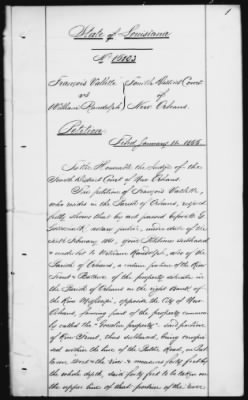 1
State of Louisiana
No
François Vallette } Fourth District Court
vs } of
William Randolph } New Orleans.
Petition
Filed January 16. 1866
To the Honorable the Judge of the
District Court of New Orleans.
The petition of François Vallette,
who resides in the Parish of Orleans, respect
fully shows that by act passed before G.
notary public, under date of the
February 1861, your Petitioner
and to William Randolph, also of the
Parish of Orleans, a certain portion of the River
front & Batture of the property situate in
the Parish of Orleans on the right Bank of
the River Mississippi, opposite the City of New
Orleans, forming part of the property common
ly called the property, said portion
of River front, thus being compri
sed within the line of the Public Road,
the River & forty feet by
the whole depth, said forty feet to be taken on
the upper line of that portion of the river